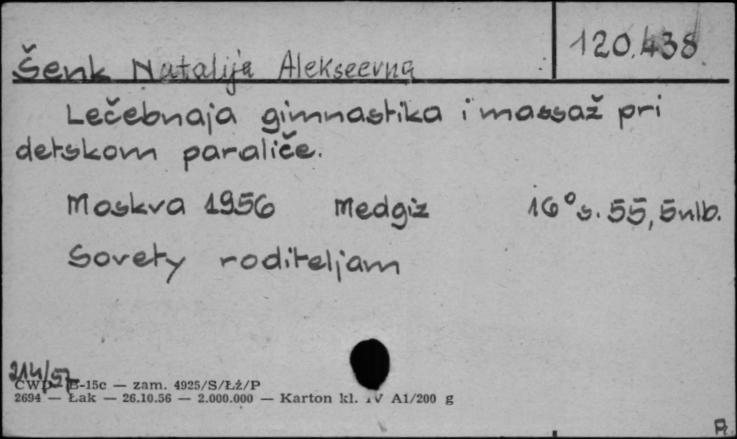 120.438
Šenk Natalija Alekseevna
Lečebnaja gimnastika i massaž pri
detskom paraliče.
Moskva 1956 Medgiz 16° s. 55, 5nlb.
Sovety roditeljam
214/57
CWD E-15c — zam. 4925/S/Łż/P
2694 — Łak — 26.10.56 — 2.000.000 — Karton kl. IV A1/200 g